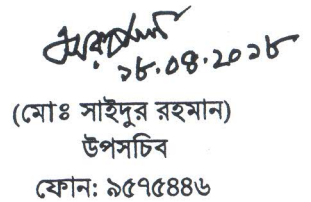 ১৮.০৪.২০১৮
(মোঃ সাইদুর রহমান)
উপসচিব
ফোন: ৯৫৭৫৪৪৬